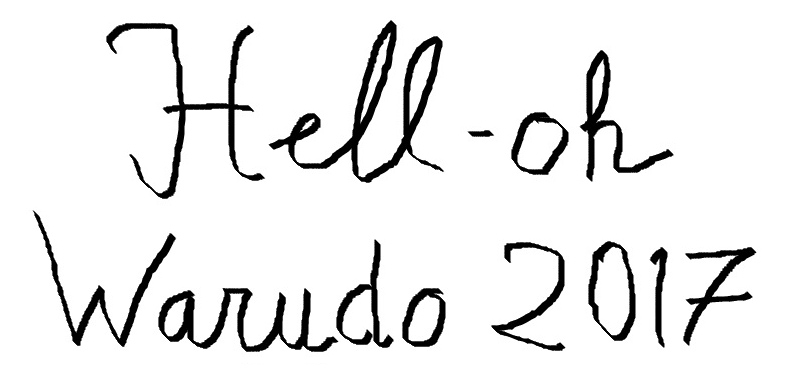 Hell-oh
Warudo 2017